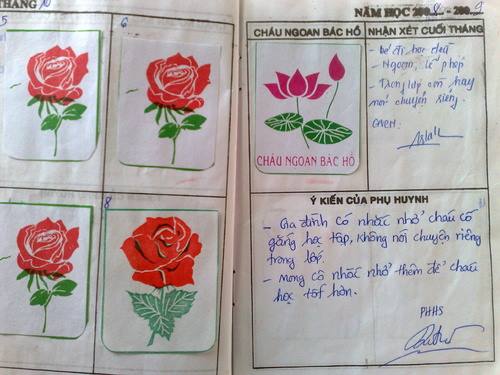 THÁNG 10
5
6
8
NĂM HỌC 2008 - 2009
CHÁU NGOAN BÁC HỒ
NHẬN XÉT CUỐI THÁNG
CHÁU NGOAN BÁC HỒ
- Bé đi học đều
- Ngoan, lễ phép
- Trong lớp còn hay
nói chuyện riêng.
GVCN:
Ý KIẾN CỦA PHỤ HUYNH
- Gia đình có nhắc nhở cháu cố
gắng học tập, không nói chuyện riêng
trong lớp.
- Mong cô nhắc nhở thêm để cháu
học tốt hơn.
PHHS